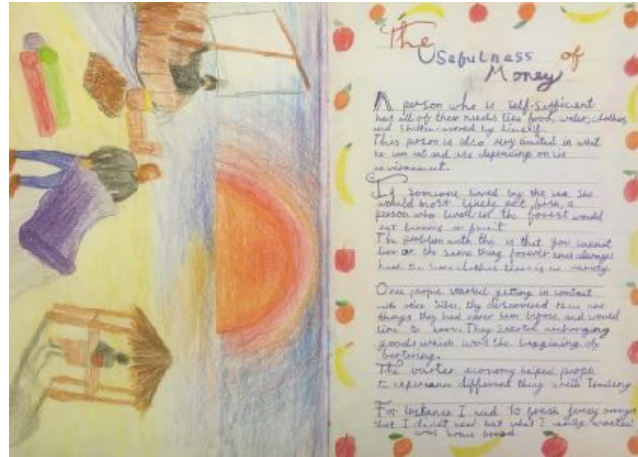 The
Usefulness of
Money
A person who is self-sufficient
has all of their needs like food, water, clothes,
and shelter covered by himself.
This person is also very limited in what
he can eat and use depending on his
environment.
If someone lived by the sea she
would most likely eat fish, a
person who lived in the forest would
eat berries or fruit.
The problem with this is that you cannot
live on the same thing forever and always
have the same clothes there is no variety.
Once people started getting in contact
with other tribes, they discovered there are
things they had never seen before and would
like to have. They started exchanging
goods which was the beggining of
bartering.
The barter economy helped people
to experience different thing while trading
For instance I had 10 fresh oranges
that I did not need but what I really wanted
was some bread.